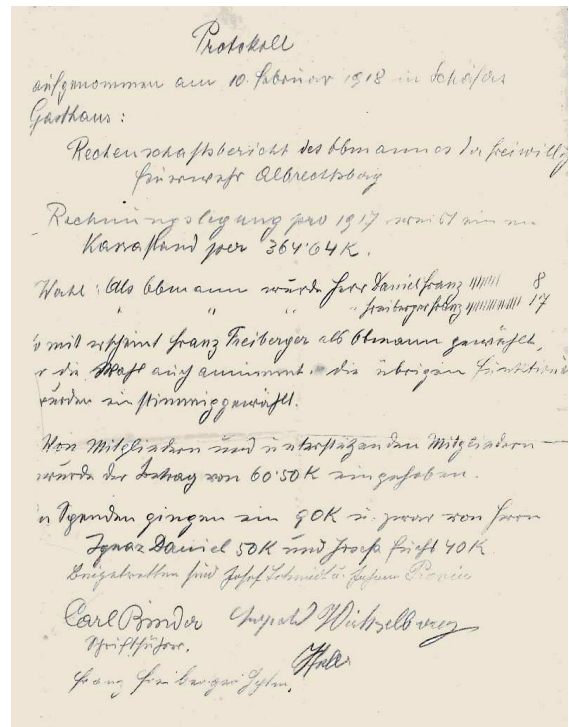 Protokoll
aufgenommen am 10. Februar 1918 in Schäfers
Gasthaus:
Rechenschaftsbericht des Obmannes der freiwillig
Feuerwehr Albrechtsberg
Rechnungslegung pro 1917 weist einen
Kassastand per 364·64 K.
Wahl: Als Obmann wurde Herr Daniel Franz 8
" " " " Freiberger Franz 17
mit erscheint Franz Freiberger als Obmann gewählt,
r die Wahl auch annimmt. die übrigen Funktionä
wurden einstimmig gewählt.
Von Mitgliedern und unterstützenden Mitgliedern
wurde der Betrag von 60·50 K eingehoben.
n Spenden gingen ein 90 K u. zwar von Herrn
Ignaz Daniel 50 K und Josef Fücht 40 K.
Beigetretten sind Josef Schmidt u. Johann
Carl Binder Leopold
Schriftführer.
Franz Freiberger Hptm.